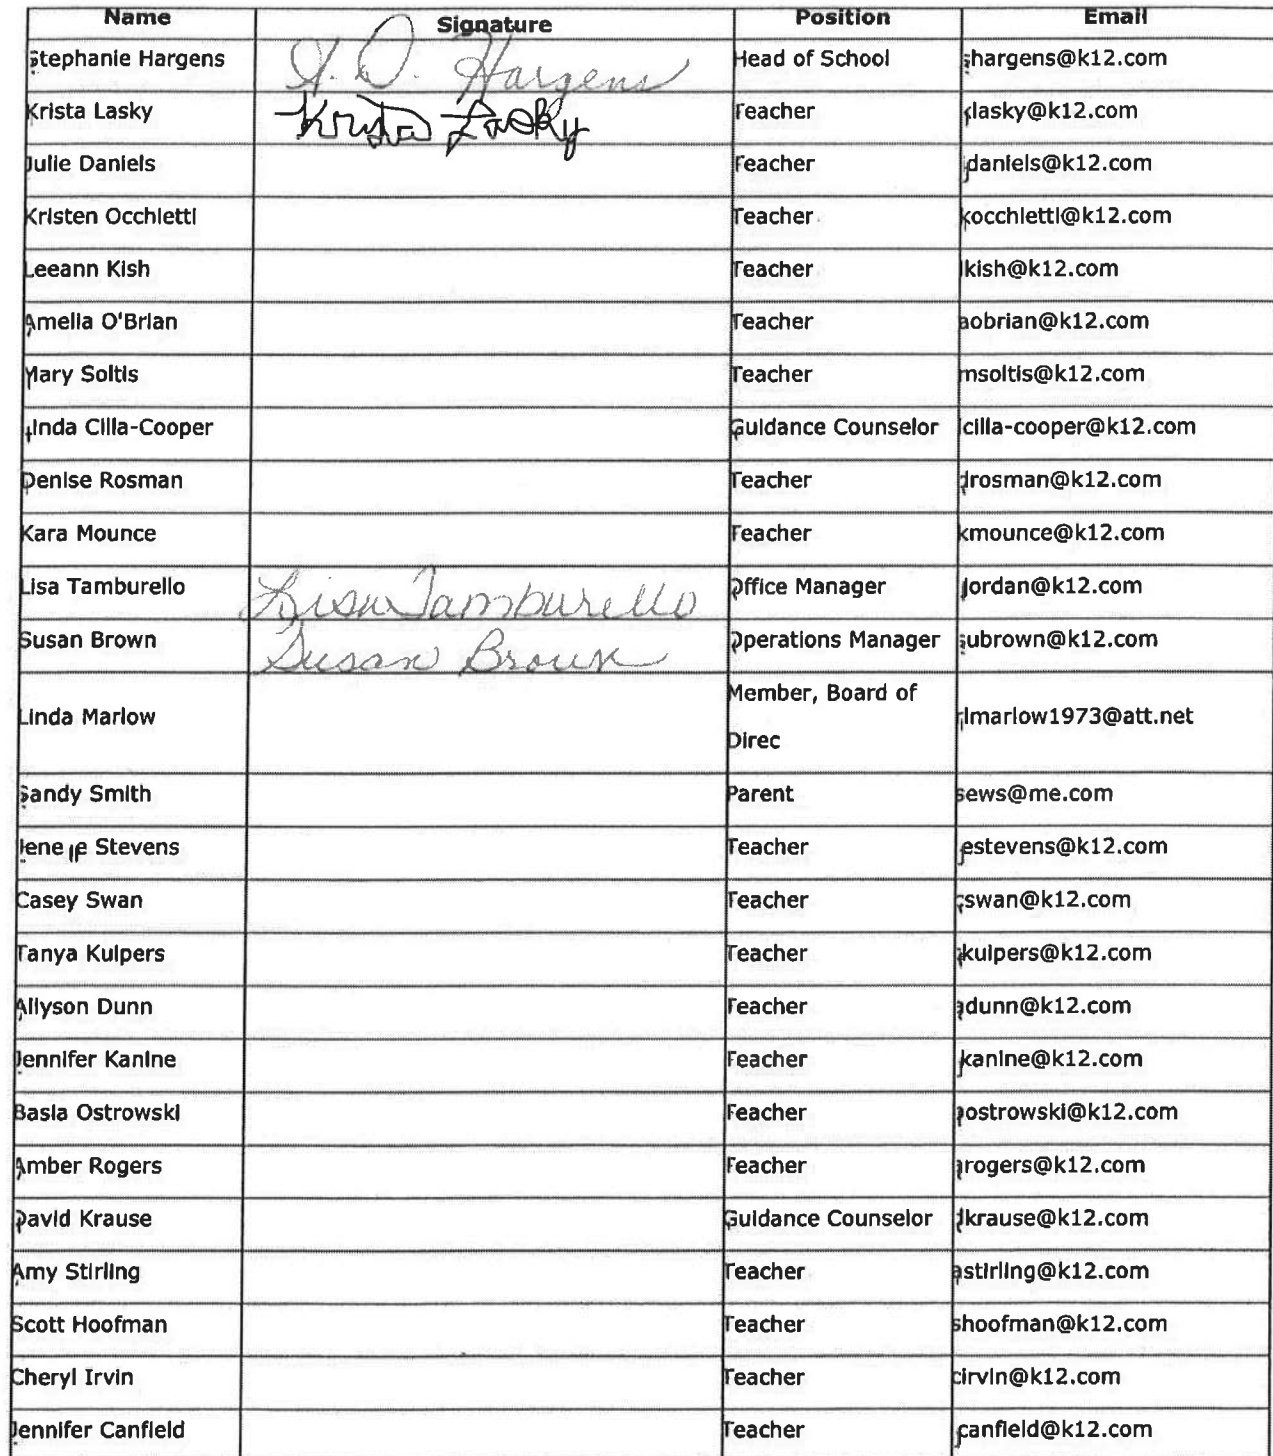 Name Signature Position Email
Stephanie Hargens S. O. Hargens Head of School shargens@k12.com
Krista Lasky Krista Lasky Teacher klasky@k12.com
Julie Daniels Teacher jdaniels@k12.com
Kristen Occhietti Teacher kocchietti@k12.com
Leeann Kish Teacher lkish@k12.com
Amelia O'Brian Teacher aobrian@k12.com
Mary Soltis Teacher msoltis@k12.com
Linda Cilla-Cooper Guidance Counselor lcilla-cooper@k12.com
Denise Rosman Teacher drosman@k12.com
Kara Mounce Teacher kmounce@k12.com
Lisa Tamburello Lisa Tamburello Office Manager ljordan@k12.com
Susan Brown Susan Brown Operations Manager subrown@k12.com
Linda Marlow Member, Board of
Direc rlmarlow1973@att.net
Sandy Smith Parent sews@me.com
Stevens Teacher jestevens@k12.com
Casey Swan Teacher cswan@k12.com
Tanya Kuipers Teacher tkuipers@k12.com
Allyson Dunn Teacher adunn@k12.com
Jennifer Kanine Teacher jkanine@k12.com
Basia Ostrowski Teacher bostrowski@k12.com
Amber Rogers Teacher arogers@k12.com
David Krause Guidance Counselor dkrause@k12.com
Amy Stirling Teacher astirling@k12.com
Scott Hoofman Teacher shoofman@k12.com
Cheryl Irvin Teacher cirvin@k12.com
Jennifer Canfield Teacher jcanfield@k12.com